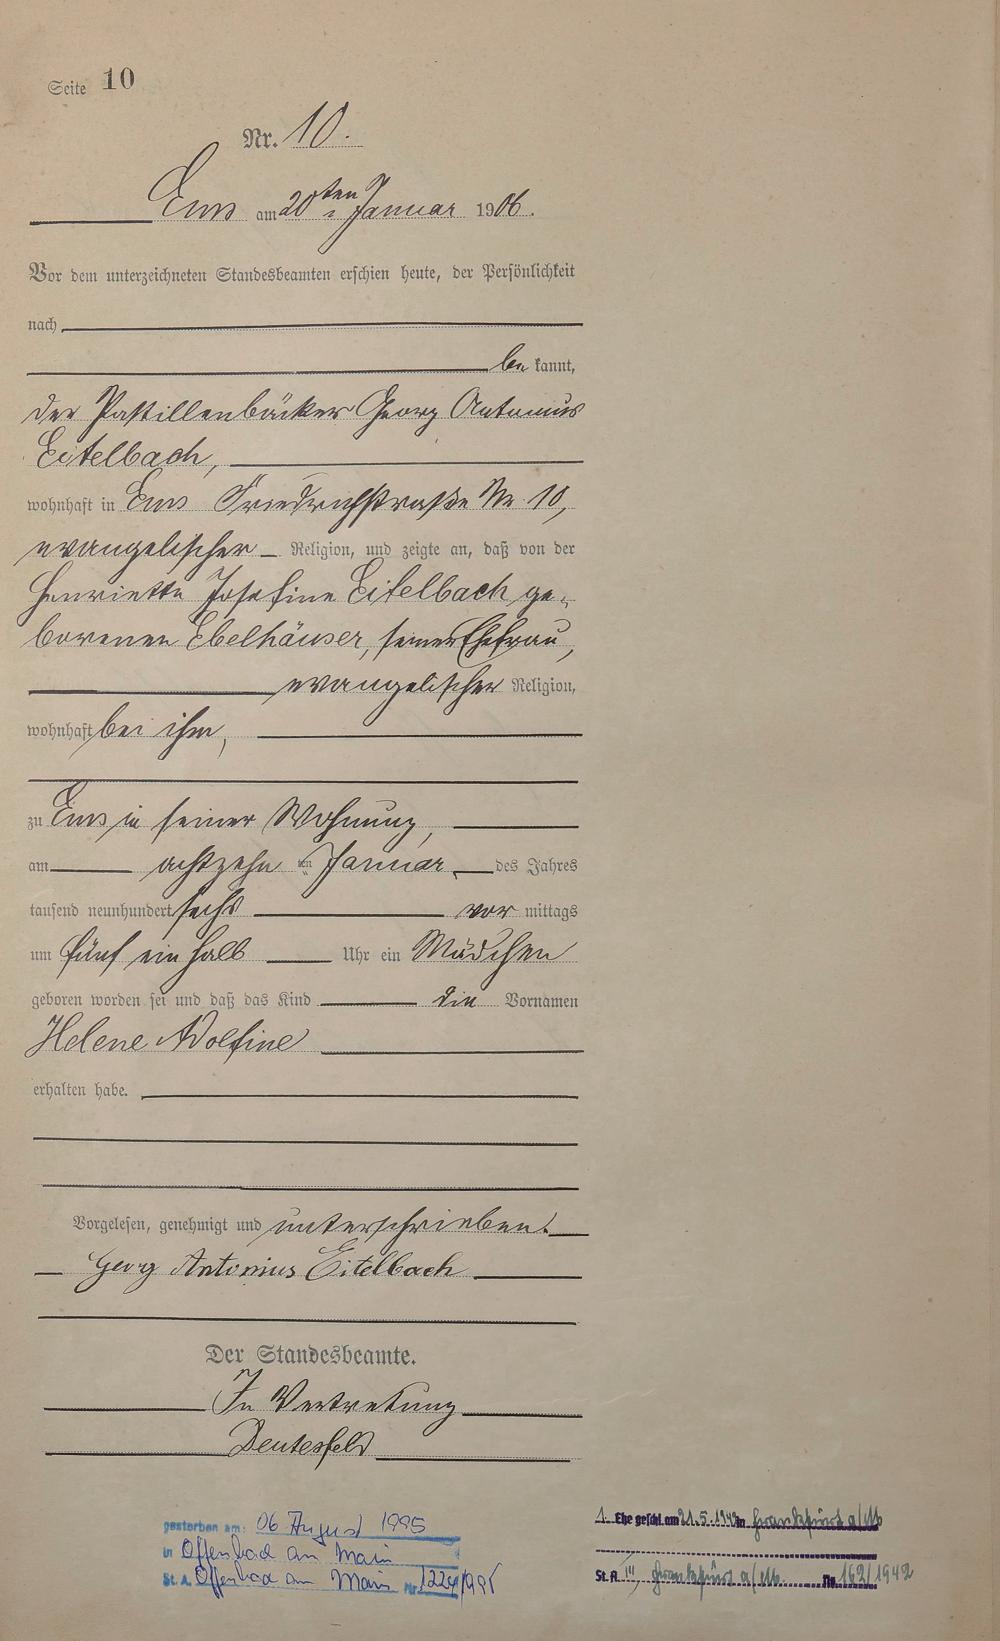 Seite 10
Nr. 10.
Ems am 20ten Januar 1906.
Vor dem unterzeichneten Standesbeamten erschien heute, der Persönlichkeit
nach
be kannt,
der Pastillenbäcker Georg Antonius
Eitelbach,
wohnhaft in Ems Friedrichstraße Nr. 10,
evangelischer Religion, und zeigte an, daß von der
Henriette Josefine Eitelbach ge-
borenen Ebelhäuser, seiner Ehefrau,
evangelischer Religion,
wohnhaft bei ihm,
zu Ems in seiner Wohnung,
am achtzehn ten Januar des Jahres
tausend neunhundert sechs vor mittags
um fünf ein halb Uhr ein Mädchen
geboren worden sei und daß das Kind die Vornamen
Helene Adolfine
erhalten habe.
Vorgelesen, genehmigt und unterschrieben.
Georg Antonius Eitelbach
Der Standesbeamte.
In Vertretung
Deutesfeld
gestorben am: 06 August 1995
in Offenbach am Main
St. A. Offenbach am Main Nr 1224/1995
1. Ehe geschl. am 21.5.1942 in Frankfurt a/M
St. A III, Frankfurt a/M. Nr. 162/1942